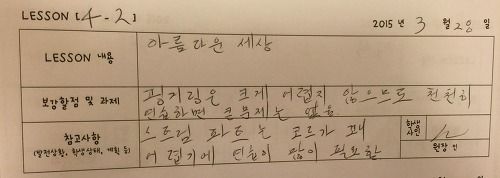 LESSON [4-2] 2015 년 3 월 28 일
LESSON 내용 아름다운 세상
보강할점 및 과제 핑거링은 크게 어렵지 않으므로 천천히
연습하면 큰문제는 없음.
참고사항 스트림 파트는 코드가 꽤 학생 사인
(발전상황, 학생상태, 계획 등) 어렵기에 연습이 많이 필요함 원장 인